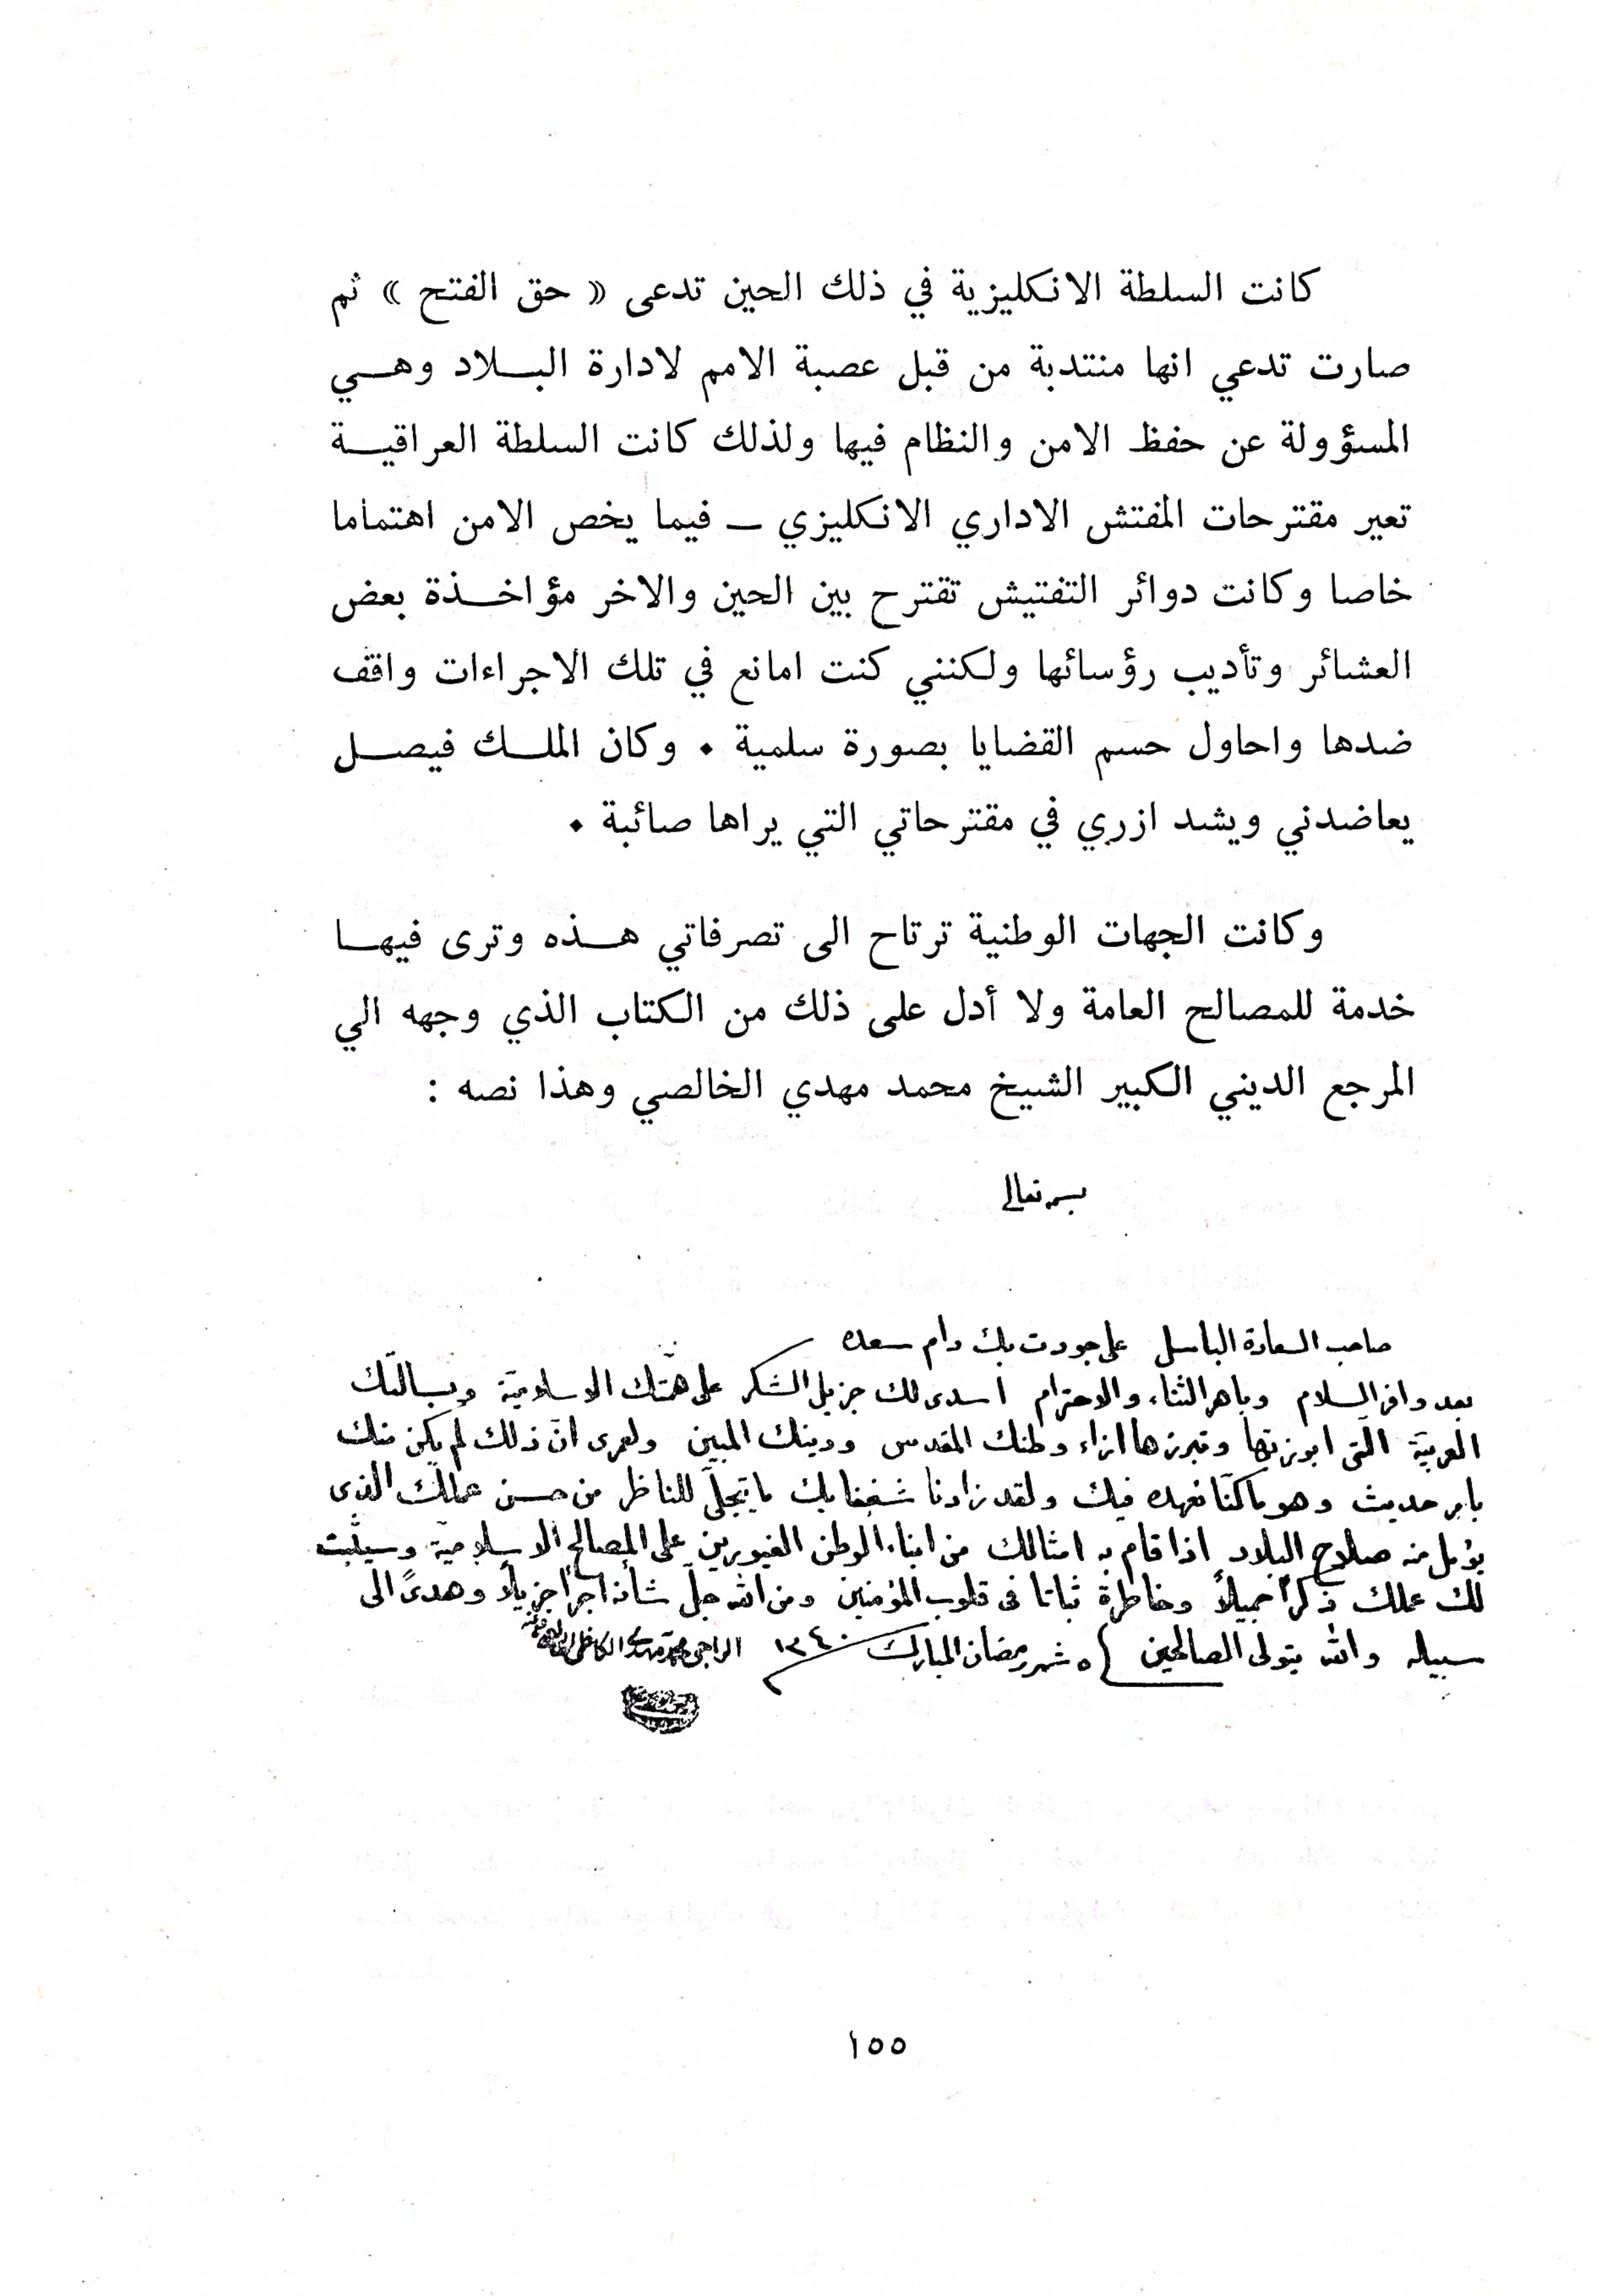 كانت السلطة الانكليزية في ذلك الحين تدعى « حق الفتح » ثم
صارت تدعي انها منتدبة من قبل عصبة الامم لادارة البـلاد وهـي
المسؤولة عن حفظ الامن والنظام فيها ولذلك كانت السلطة العراقيـة
تعير مقترحات المفتش الاداري الانكليزي ـ فيما يخص الامن اهتماما
خاصا وكانت دوائر التفتيش تقترح بين الحين والاخر مؤاخـذة بعض
العشائر وتأديب رؤسائها ولكنني كنت امانع في تلك الاجراءات واقف
ضدها واحاول حسم القضايا بصورة سلمية . وكان الملـك فيصـل
يعاضدني ويشد ازري في مقترحاتي التي يراها صائبة .
وكانت الجهات الوطنية ترتاح الى تصرفاتي هـذه وترى فيهـا
خدمة للمصالح العامة ولا أدل على ذلك من الكتاب الذي وجهه الي
المرجع الديني الكبير الشيخ محمد مهدي الخالصي وهذا نصه :
بسمه تعالى
صاحب السعادة الباسل علي جودت بك دام سعده
بعد وافر السلام وباهر الثناء والاحترام اسدى لك جزيل الشكر على همّتك الاسلاميّة وبسالتك
العربيّة الّتى ابرزتها وتبرزها ازاء وطنك المقدس ودينك المبين ولعمرى انّ ذلك لم يكن منك
بامر حديث وهو ما كنّا نعهده فيك ولقد زادنا شغفا بك ما يتجلّى للناظر من حسن عملك الذى
يؤمل منه صلاح البلاد اذا قام به امثالك من ابناء الوطن الغيورين على المصالح الاسلامية وسيثبت
لك عملك ذكراً جميلاً وخاطرة ثباتا فى قلوب المؤمنين ومن الله جلّ شأنه اجراً جزيلاً وهدىً الى
سبيله والله يتولى الصالحين ٥ شهر رمضان المبارك ١٣٤٠ الراجى محمد مهدي الكاظمى
١٥٥